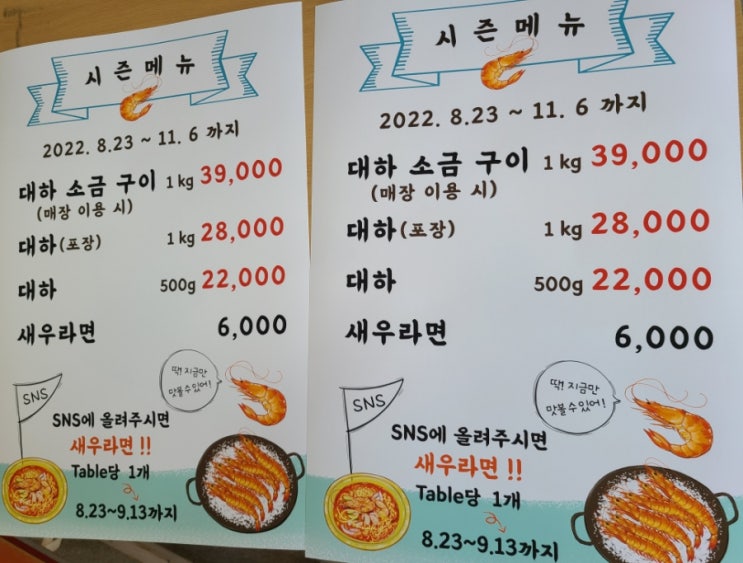 시즌메뉴
2022. 8.23 ~ 11. 6 까지
대하 소금 구이 1 kg 39,000
(매장 이용 시)
대하(포장) 1 kg 28,000
대하 500g 22,000
새우라면 6,000
딱! 지금만
맛볼 수 있어!
SNS
SNS에 올려주시면
새우라면 !!
Table당 1개
8.23~9.13까지
시즌메뉴
2022. 8.23 ~ 11. 6 까지
대하 소금 구이 1 kg 39,000
(매장 이용 시)
대하(포장) 1 kg 28,000
대하 500g 22,000
새우라면 6,000
딱! 지금만
맛볼 수 있어!
SNS
SNS에 올려주시면
새우라면 !!
Table당 1개
8.23~9.13까지